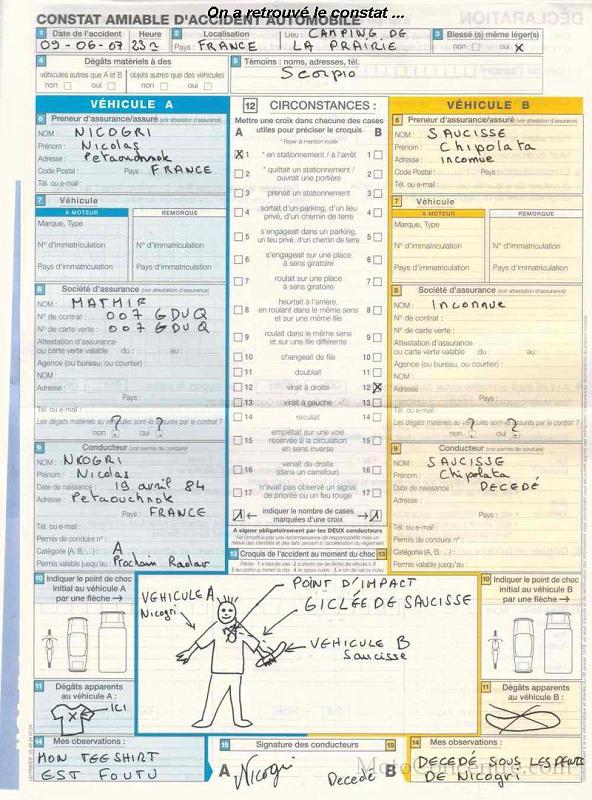 On a retrouvé le constat ...
CONSTAT AMIABLE D'ACCIDENT AUTOMOBILE
1 Date de l'accident Heure
09-06-07 23h
2 Localisation Lieu : CAMPING DE
Pays : FRANCE LA PRAIRIE
3 Blessé(s) même léger(s)
non oui x
4 Dégâts matériels à des
véhicules autres que A et B objets autres que des véhicules
non oui non oui
5 Témoins : noms, adresses, tél.
Scorpio
VÉHICULE A
6 Preneur d'assurance/assuré (voir attestation d'assurance)
NOM : NICOGRI
Prénom : Nicolas
Adresse : Petaouchnok
Code Postal : Pays : FRANCE
Tél. ou e-mail :
7 Véhicule
A MOTEUR REMORQUE
Marque, Type
N° d'immatriculation N° d'immatriculation
Pays d'immatriculation Pays d'immatriculation
8 Société d'assurance (voir attestation d'assurance)
NOM : MATMIR
N° de contrat : 007 GDUQ
N° de carte verte : 007 GDUQ
Attestation d'assurance
ou carte verte valable du : au :
Agence (ou bureau, ou courtier) :
NOM :
Adresse :
Pays :
Tél. ou e-mail :
Les dégâts matériels au véhicule sont-ils assurés par le contrat ?
? ?
non oui
9 Conducteur (voir permis de conduire)
NOM : NICOGRI
Prénom : Nicolas
Date de naissance : 19 avril 84
Adresse : Petaouchnok
Pays : FRANCE
Tél. ou e-mail :
Permis de conduire n° :
Catégorie (A, B, ...) : A
Permis valable jusqu'au : Prochain Radar
12 CIRCONSTANCES :
Mettre une croix dans chacune des cases
A utiles pour préciser le croquis B
* Rayer la mention inutile
X 1 * en stationnement / à l'arrêt 1
2 * quittait un stationnement / ouvrait une portière 2
3 prenait un stationnement 3
4 sortait d'un parking, d'un lieu privé, d'un chemin de terre 4
5 s'engageait dans un parking, un lieu privé, d'un chemin de terre 5
6 s'engageait sur une place à sens giratoire 6
7 roulait sur une place à sens giratoire 7
8 heurtait à l'arrière, en roulant dans le même sens et sur une même file 8
9 roulait dans le même sens et sur une file différente 9
10 changeait de file 10
11 doublait 11
12 virait à droite 12 X
13 virait à gauche 13
14 reculait 14
15 empiétait sur une voie réservée à la circulation en sens inverse 15
16 venait de droite (dans un carrefour) 16
17 n'avait pas observé un signal de priorité ou un feu rouge 17
1 ← indiquer le nombre de cases marquées d'une croix → 1
A signer obligatoirement par les DEUX conducteurs
13 Croquis de l'accident au moment du choc 13
VÉHICULE B
6 Preneur d'assurance/assuré (voir attestation d'assurance)
NOM : SAUCISSE
Prénom : Chipolata
Adresse : inconnue
Code Postal : Pays :
Tél. ou e-mail :
7 Véhicule
A MOTEUR REMORQUE
Marque, Type
N° d'immatriculation N° d'immatriculation
Pays d'immatriculation Pays d'immatriculation
8 Société d'assurance (voir attestation d'assurance)
NOM : Inconnue
N° de contrat :
N° de carte verte :
Attestation d'assurance
ou carte verte valable du : au :
Agence (ou bureau, ou courtier) :
NOM :
Adresse :
Pays :
Tél. ou e-mail :
Les dégâts matériels au véhicule sont-ils assurés par le contrat ?
? ?
non oui
9 Conducteur (voir permis de conduire)
NOM : SAUCISSE
Prénom : Chipolata
Date de naissance : DECEDÉ
Adresse :
Pays :
Tél. ou e-mail :
Permis de conduire n° :
Catégorie (A, B, ...) :
Permis valable jusqu'au :
10 Indiquer le point de choc
initial au véhicule A
par une flèche →
VEHICULE A
Nicogri
POINT D'IMPACT
GICLÉE DE SAUCISSE
VEHICULE B
Saucisse
10 Indiquer le point de choc
initial au véhicule B
par une flèche →
11 Dégâts apparents
au véhicule A :
ICI
11 Dégâts apparents
au véhicule B :
14 Mes observations :
MON TEE SHIRT
EST FOUTU
15 Signature des conducteurs 15
A Nicogri Decedé B
14 Mes observations :
DECEDÉ SOUS LES DENTS
DE NICOGRI
MotoConcentre.com